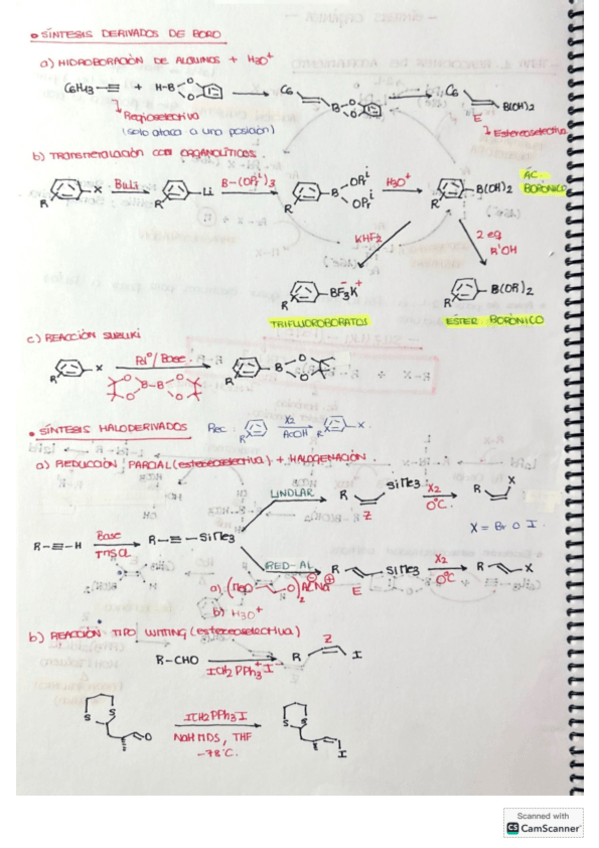 • SÍNTESIS DERIVADOS DE BORO
a) HIDROBORACIÓN DE ALQUINOS + H3O+
C6H13-≡ + H-B O O → C6 B-O O → C6 B(OH)2
E
↳ Regioselectiva
(solo ataca a una posición)
↳ Estereoselectiva
b) TRANSMETALACIÓN CON ORGANOLÍTICOS.
R X BuLi R Li B-(OPri)3 R B OPri OPri H3O+ R B(OH)2
ÁC. BORÓNICO
KHF2
2 eq R'OH
R BF3-K+
R B(OR)2
TRIFLUOROBORATOS
ÉSTER BORÓNICO
c) REACCIÓN SUZUKI
R X Pd0/Base. R B O O
O O B-B O O
• SÍNTESIS HALODERIVADOS
Rec: R X2 AcOH R X.
a) REDUCCIÓN PARCIAL (estereoselectiva) + HALOGENACIÓN.
LINDLAR R SiMe3 Z X2 0ºC. R X
X = Br o I.
R-≡-H Base TMSCl R-≡-SiMe3
RED-AL R SiMe3 E X2 0ºC R X
a) (MeO O)2 AlNa
b) H3O+
b) REACCIÓN TIPO WITTING (estereoselectiva)
R-CHO ICH2PPh3+I- R Z I
S S O ICH2PPh3I S S I
NaHMDS, THF
-78ºC.
Scanned with
CS CamScanner